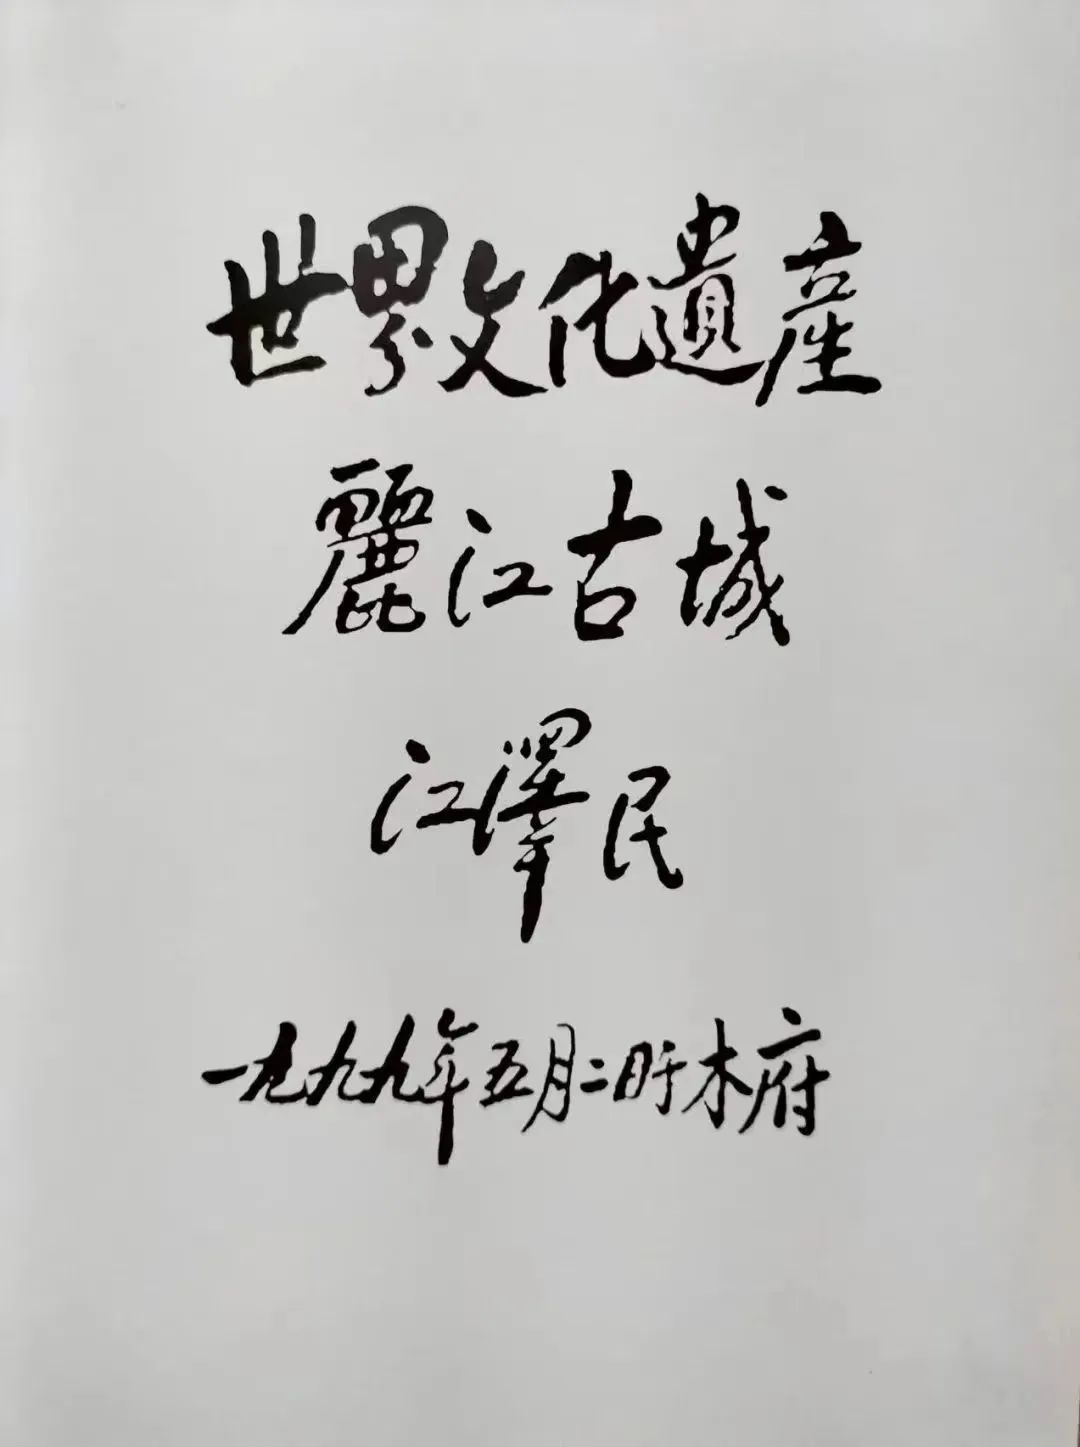 世界文化遺産
麗江古城
江澤民
一九九九年五月二日於木府